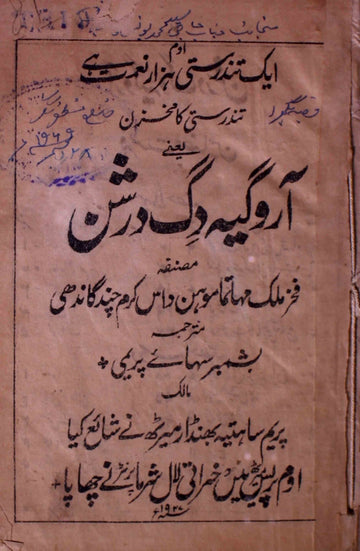 اوم
ایک تندرستی ہزار نعمت ہے
تندرستی کا مخزن
یعنے
آروگیہ دِگ درشن
مصنفہ
فخر ملک مہاتما موہن داس کرم چند گاندھی
مترجمہ
بشمبر سہائے پریمی
مالک
پریم ساہتیہ بھنڈار میرٹھ نے شائع کیا
اوم پریس میں خیراتی لال شرما پرنٹر نے چھاپا
۱۹۲۷ء